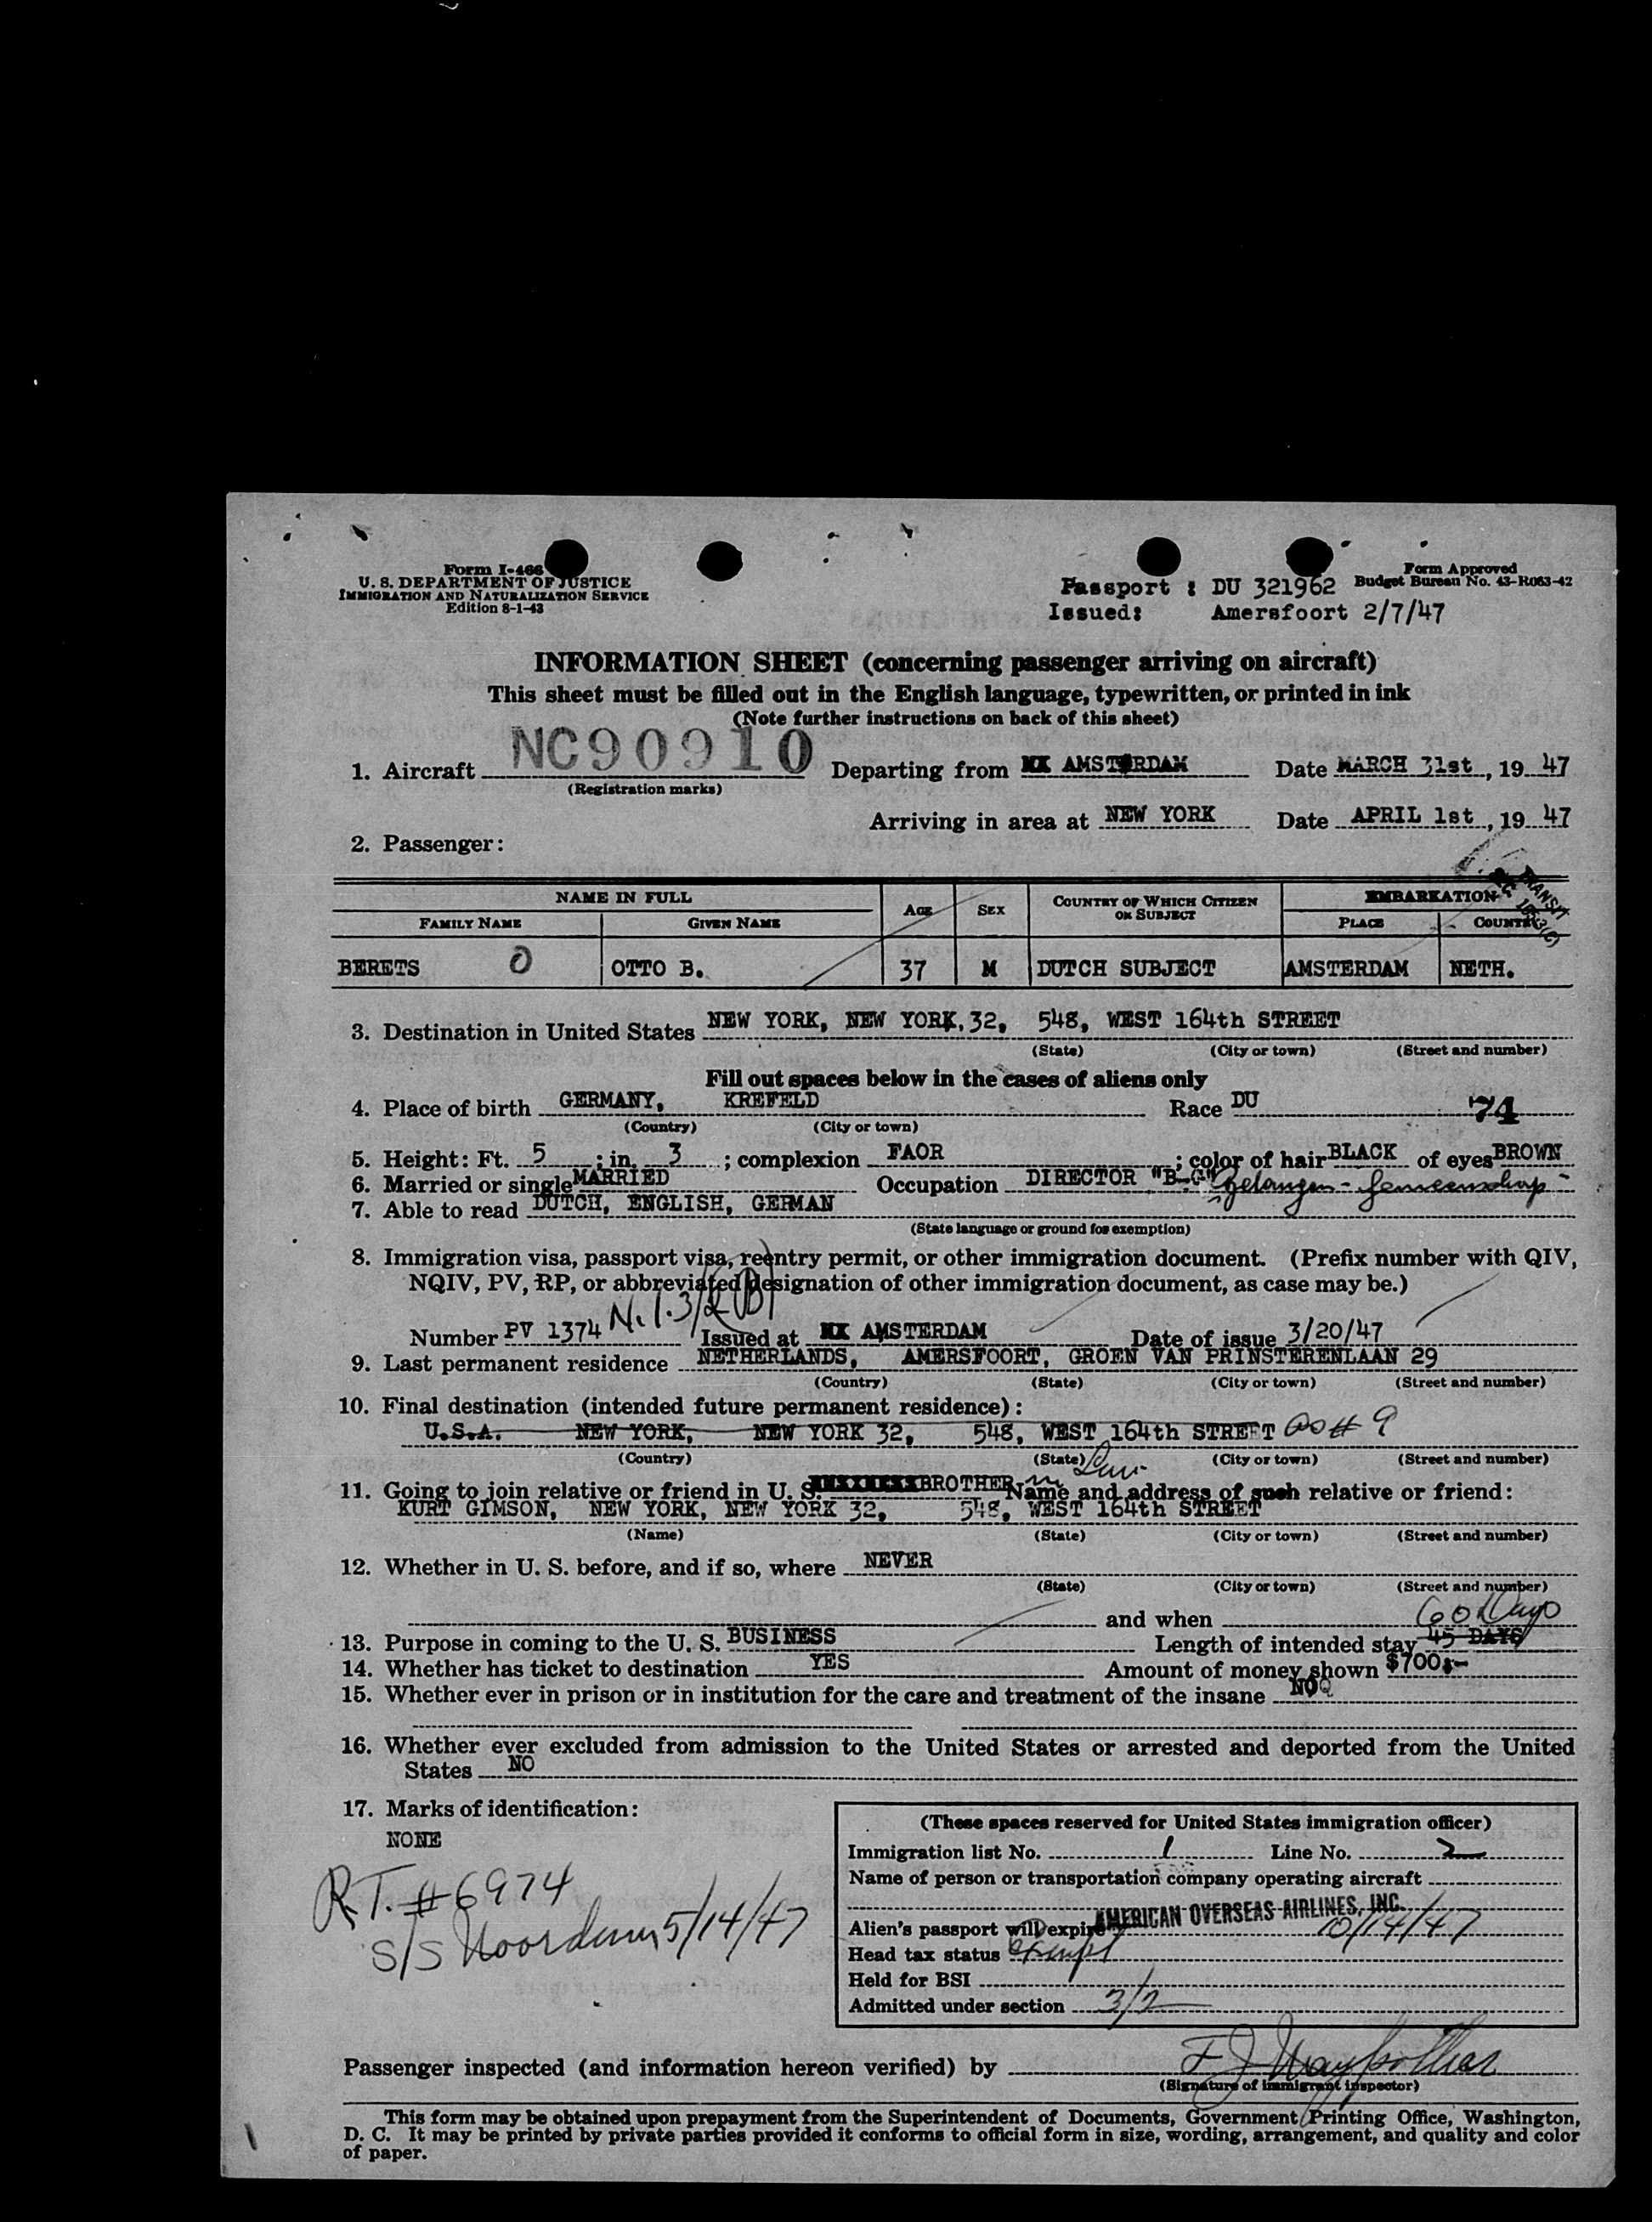 Form I-466
U. S. DEPARTMENT OF JUSTICE
IMMIGRATION AND NATURALIZATION SERVICE
Edition 8-1-43
Form Approved
Budget Bureau No. 43-R063-42
Passport : DU 321962
Issued: Amersfoort 2/7/47
INFORMATION SHEET (concerning passenger arriving on aircraft)
This sheet must be filled out in the English language, typewritten, or printed in ink
(Note further instructions on back of this sheet)
1. Aircraft NC90910 Departing from XX AMSTERDAM Date MARCH 31st, 19 47
(Registration marks)
Arriving in area at NEW YORK Date APRIL 1st, 19 47
2. Passenger:
TRANSIT
NAME IN FULL AGE SEX COUNTRY OF WHICH CITIZEN OR SUBJECT EMBARKATION
FAMILY NAME GIVEN NAME PLACE COUNTRY
BERETS 0 OTTO B. 37 M DUTCH SUBJECT AMSTERDAM NETH.
3. Destination in United States NEW YORK, NEW YORK, 32, 548, WEST 164th STREET
(State) (City or town) (Street and number)
Fill out spaces below in the cases of aliens only
4. Place of birth GERMANY, KREFELD Race DU 74
(Country) (City or town)
5. Height: Ft. 5 ; in. 3 ; complexion FAOR ; color of hair BLACK of eyes BROWN
6. Married or single MARRIED Occupation DIRECTOR "B-G"
7. Able to read DUTCH, ENGLISH, GERMAN
(State language or ground for exemption)
8. Immigration visa, passport visa, reentry permit, or other immigration document. (Prefix number with QIV,
NQIV, PV, RP, or abbreviated designation of other immigration document, as case may be.)
Number PV 1374 Issued at XX AMSTERDAM Date of issue 3/20/47
9. Last permanent residence NETHERLANDS, AMERSFOORT, GROEN VAN PRINSTERENLAAN 29
(Country) (State) (City or town) (Street and number)
10. Final destination (intended future permanent residence):
U.S.A. NEW YORK, NEW YORK 32, 548, WEST 164th STREET as # 9
(Country) (State) (City or town) (Street and number)
11. Going to join relative or friend in U. S. BROTHER in Law Name and address of such relative or friend:
KURT GIMSON, NEW YORK, NEW YORK 32, 548, WEST 164th STREET
(Name) (State) (City or town) (Street and number)
12. Whether in U. S. before, and if so, where NEVER
(State) (City or town) (Street and number)
and when
60 Days
13. Purpose in coming to the U. S. BUSINESS Length of intended stay 45 DAYS
14. Whether has ticket to destination YES Amount of money shown $700:-
15. Whether ever in prison or in institution for the care and treatment of the insane NO
16. Whether ever excluded from admission to the United States or arrested and deported from the United
States NO
17. Marks of identification:
NONE
R.T. #6974
S/S Noordam 5/14/47
(These spaces reserved for United States immigration officer)
Immigration list No. 1 Line No. 2
Name of person or transportation company operating aircraft
AMERICAN OVERSEAS AIRLINES, INC.
Alien's passport will expire 10/14/47
Head tax status exempt
Held for BSI
Admitted under section 3/2
Passenger inspected (and information hereon verified) by
(Signature of immigrant inspector)
This form may be obtained upon prepayment from the Superintendent of Documents, Government Printing Office, Washington,
D. C. It may be printed by private parties provided it conforms to official form in size, wording, arrangement, and quality and color
of paper.